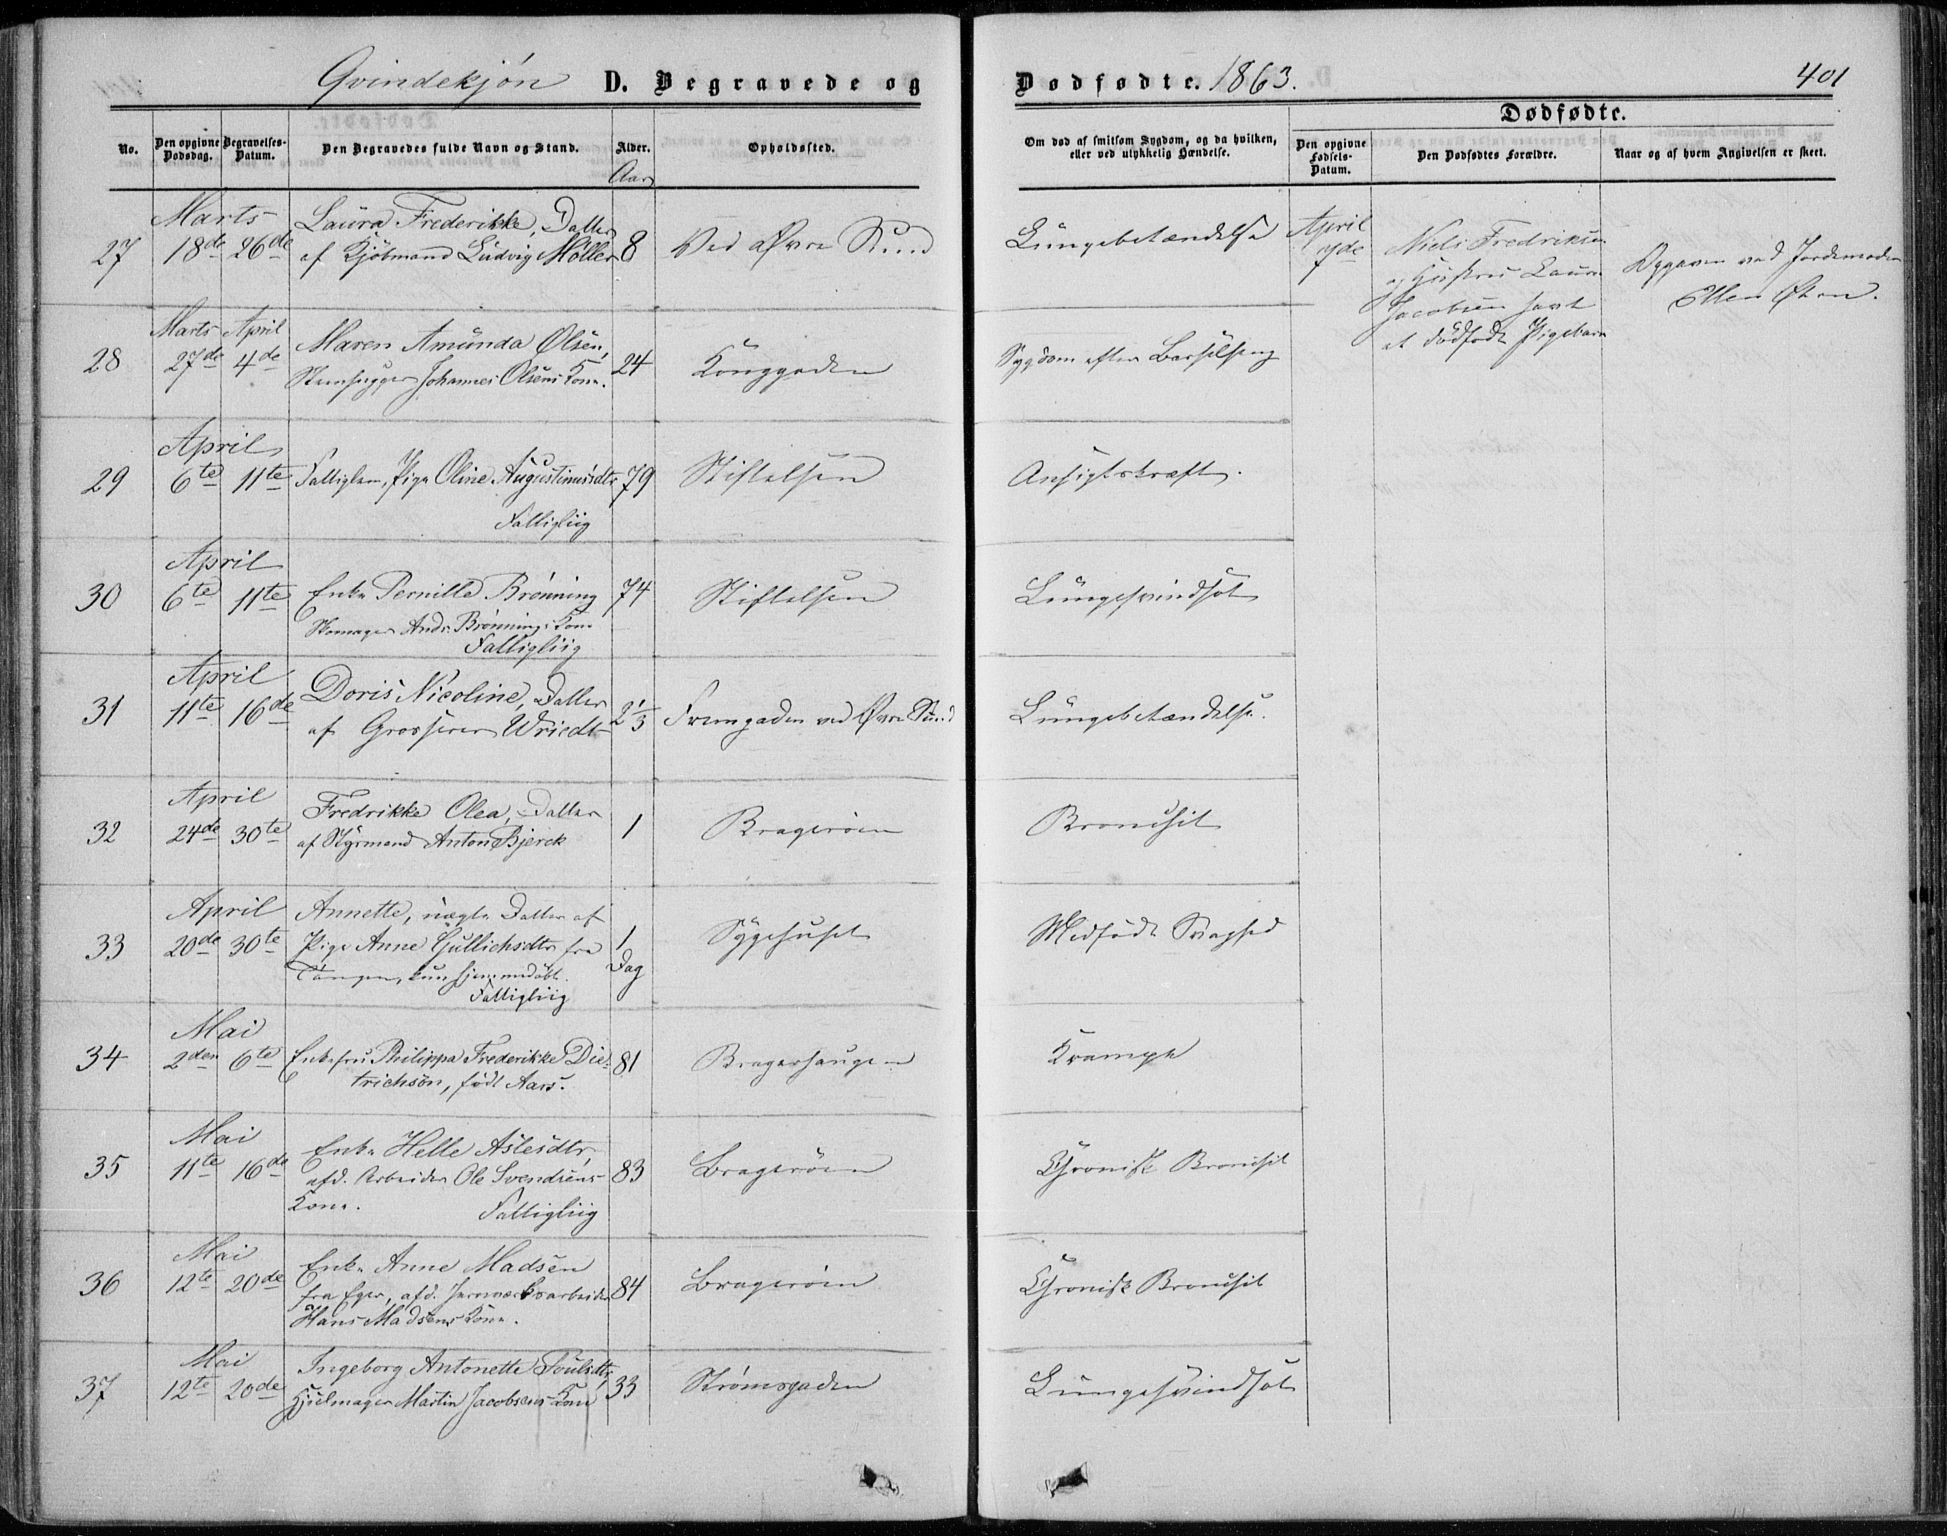 Qvindekjøn D. Begravede og Dødfødte. 1863. 401
No. Den opgivne Dødsdag. Begravelses-Datum. Den Begravedes fulde Navn og Stand. Alder. Opholdssted. Om død af smitsom Sygdom, og da hvilken, eller ved ulykkelig Hændelse.
Dødfødte.
Den opgivne Fødsels-Datum. Den Dødfødtes Forældre. Naar og af hvem Angivelsen er skeet.
Aar
27 Marts 18de 26de Laura Frederikke, Datter
af Kjøbmand Ludvig Møller 8 Ved Øvre Sund Lungebetændelse
April 7de Niels Fredriksen
og Hustru Laura
Jacobsen havt
et dødfødt Pigebarn
Opgaven ved Jordemoder
Ellen Øren.
28 Marts 27de April 4de Maren Amunda Olsen,
Steenhugger Johannes Olsens Kone. 24 Konggaden Sygdom efter Barselseng
29 April 6te 11te Fattiglem, Pige Oline Augustinusdtr 79 Stiftelsen Ansigtskræft.
Fattigliig
30 April 6te 11te Enke Pernille Brønning 74 Stiftelsen Lungesvindsot
Skomager Andr. Brønnings Kone
Fattigliig
31 April 11te 16de Doris Nicoline, Datter
af Grosserer Wriedt 2 1/3 Fremgaden ved Øvre Sund Lungebetændelse.
32 April 24de 30te Fredrikke Olea, Datter
af Styrmand Anton Bjerck 1 Bragerøen Bronchit
33 April 20de 30te Annette, uægte Datter af
Pige Anne Gullichsdtr fra
Tangen, kun hjemmedøbt. 1 Dag Sygehuset Medfødt Svaghed
Fattigliig
34 Mai 2den 6te Enkefru Philippa Frederikke Die-
trichsøn, født Aars. 81 Bragerhaugen Krampe
35 Mai 11te 16de Enke Helle Aslesdtr,
afd. Arbeider Ole Svendsens
Kone. 83 Bragerøen Chronisk Bronchit
Fattigliig
36 Mai 12te 20de Enke Anne Madsen
fra Eger, afd. Jernværksarbeider
Hans Madsens Kone. 84 Bragerøen Chronisk Bronchit
37 Mai 12te 20de Ingeborg Antonette Poulsdtr,
Hjulmager Martin Jacobsens Kone 33 Strømsgaden Lungesvindsot